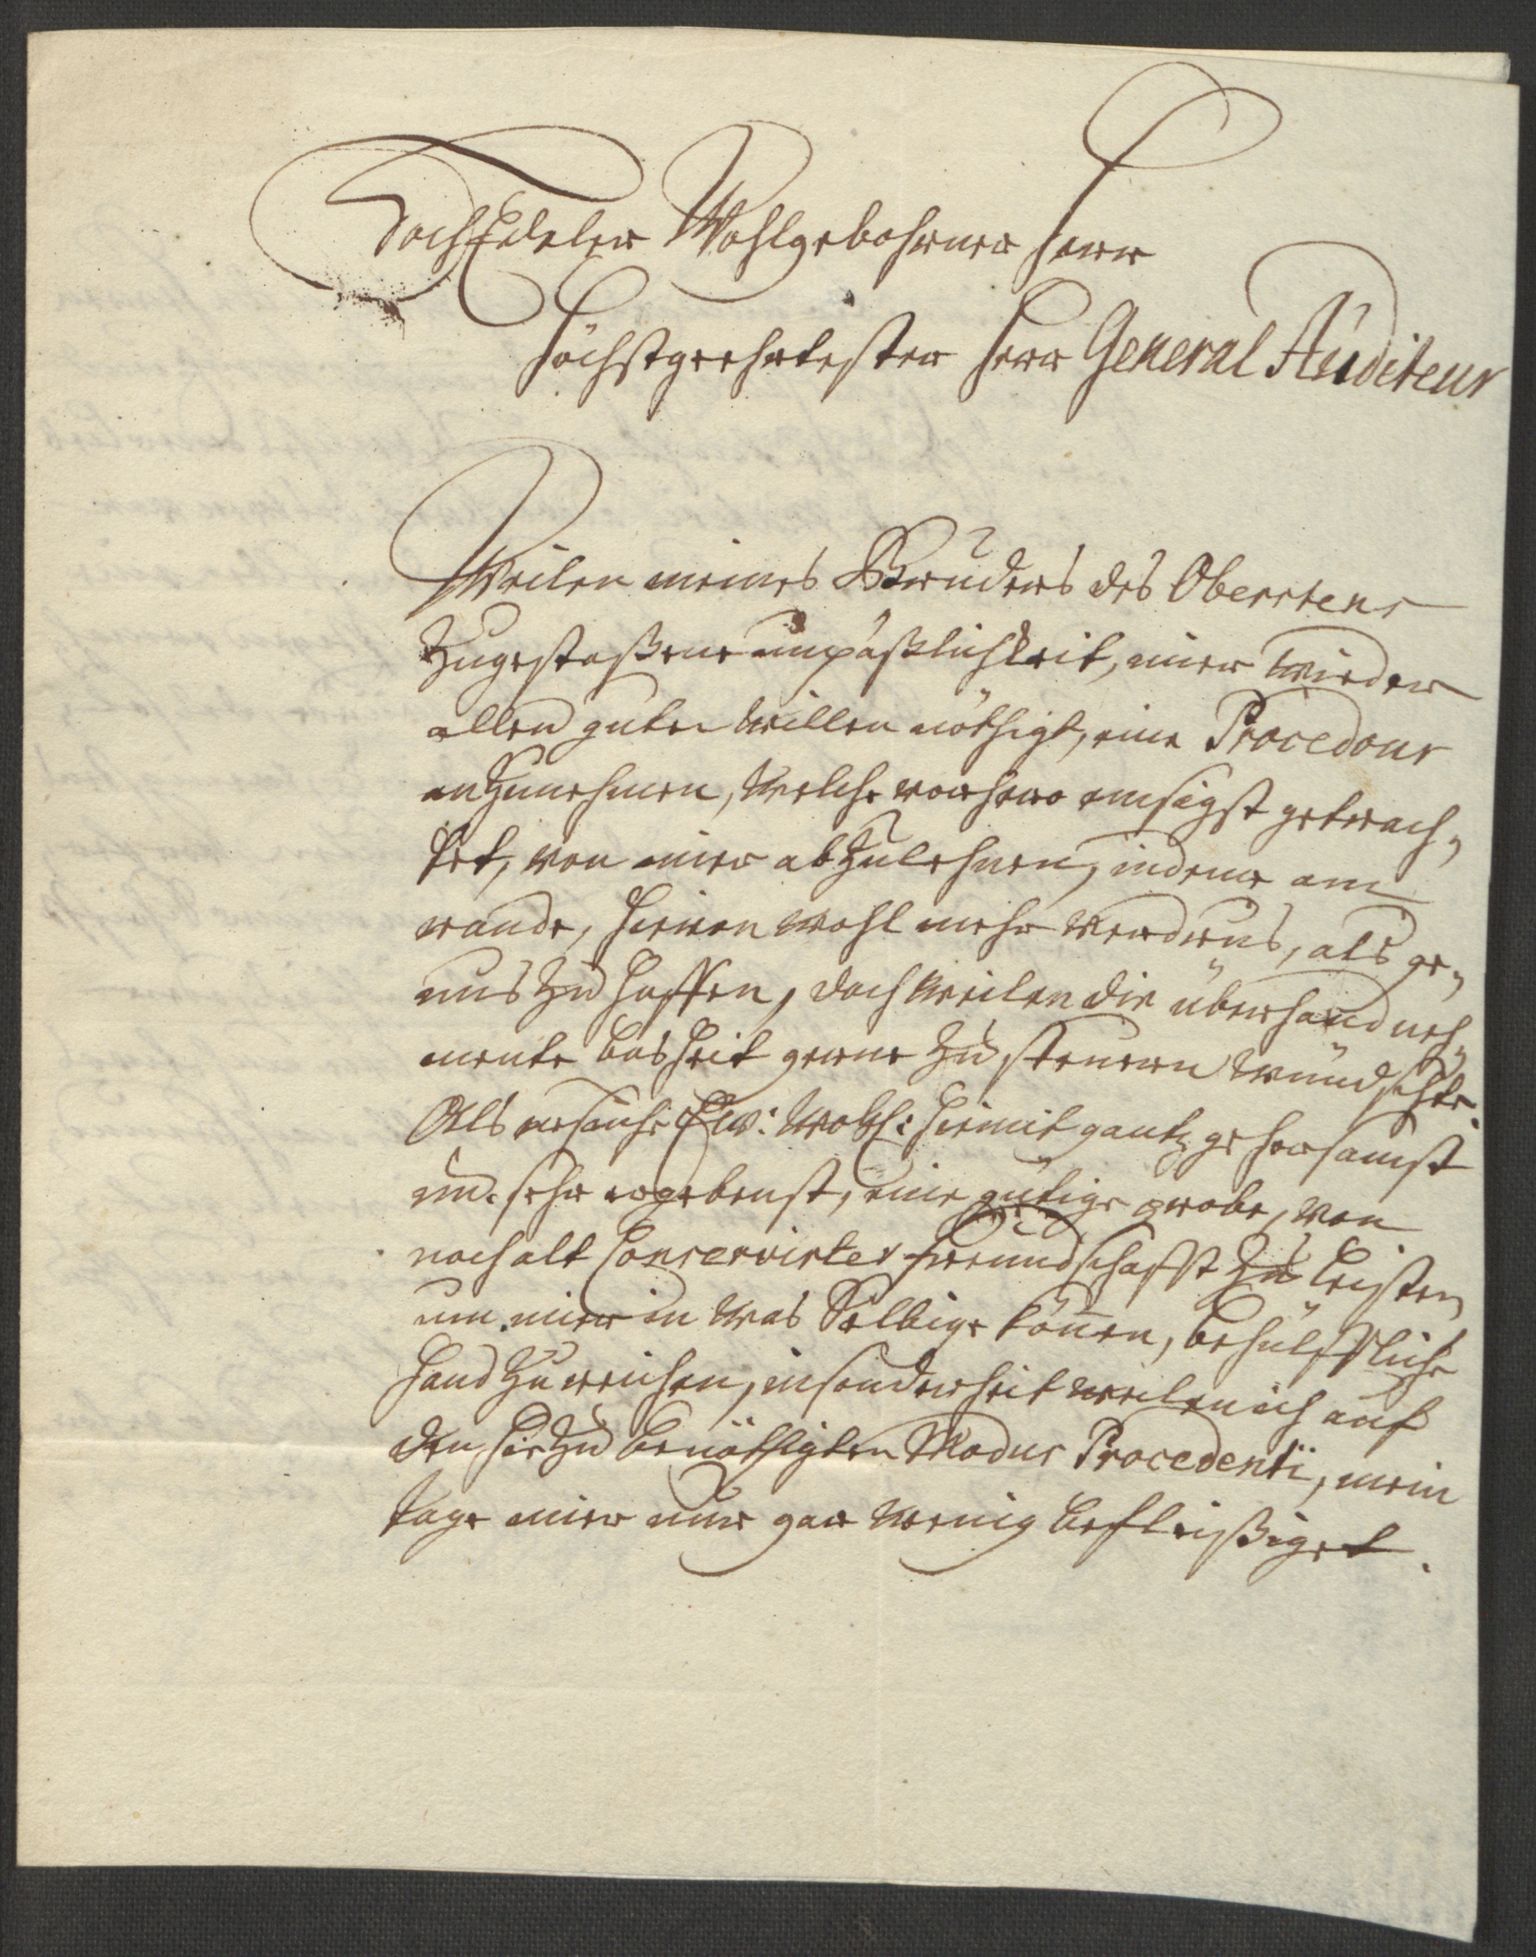 HochEdeler Wohlgebohrner Herr
Höchstgeehrtester Herr General Auditeur
Weilen meines Bruders des Oberstens
Zugestoßene unpäßlichkeit, mier wieder
allen guten willen nöthigt, eine Procedour
anzunehmen, welche vorhero emsigst getrach,
tet, von mier abzulehnen, indeme am
rande, hievon wohl mehr verdrus, als ge,
nus zu hoffen, doch weilen die überhand neh,
mente bosheit gerne zu steuern wündschte.
Als ersuche Ew: Wohl: hiemit gantz gehorsamst
und sehr ergebenst, eine gütige probe, von
noch alt Conservirter freundschafft zu leisten
um mier in was Selbige können, behülffliche
hand zu reichen, insonderheit weilen ich auf
den hirzu benöthigten Modus Procedenti, mein
tage mier nur gar wenig befleißiget.